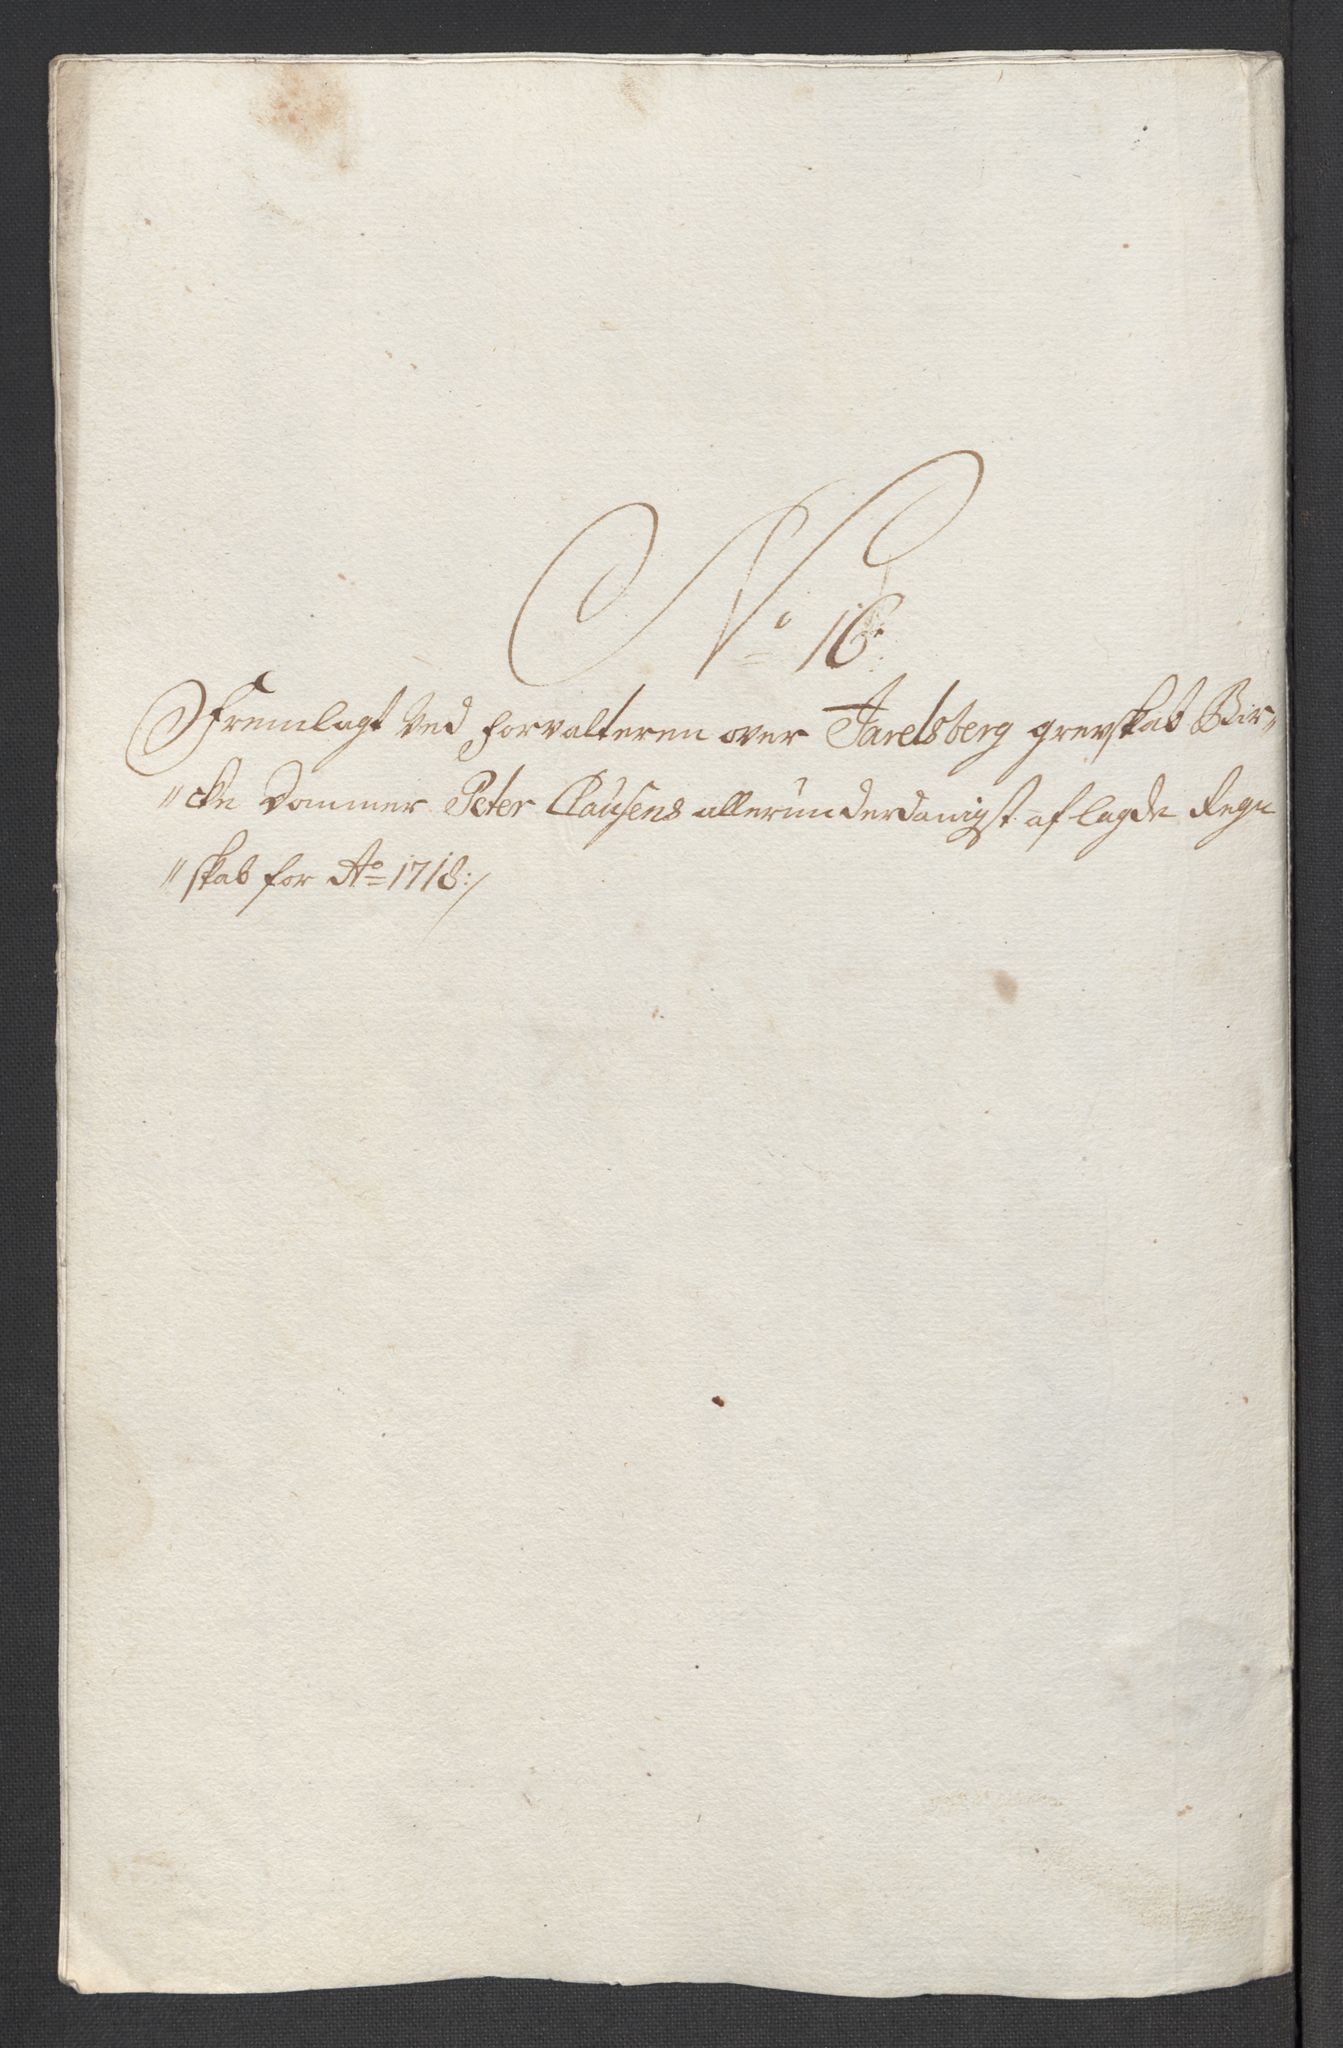 No 16.
Fremlagt ved Forvalteren over Jarelsberg grevskab Bir„
„cke Dommer Peter Clausens allerunderdanigst aflagde Regn
„skab for Ao 1718:/